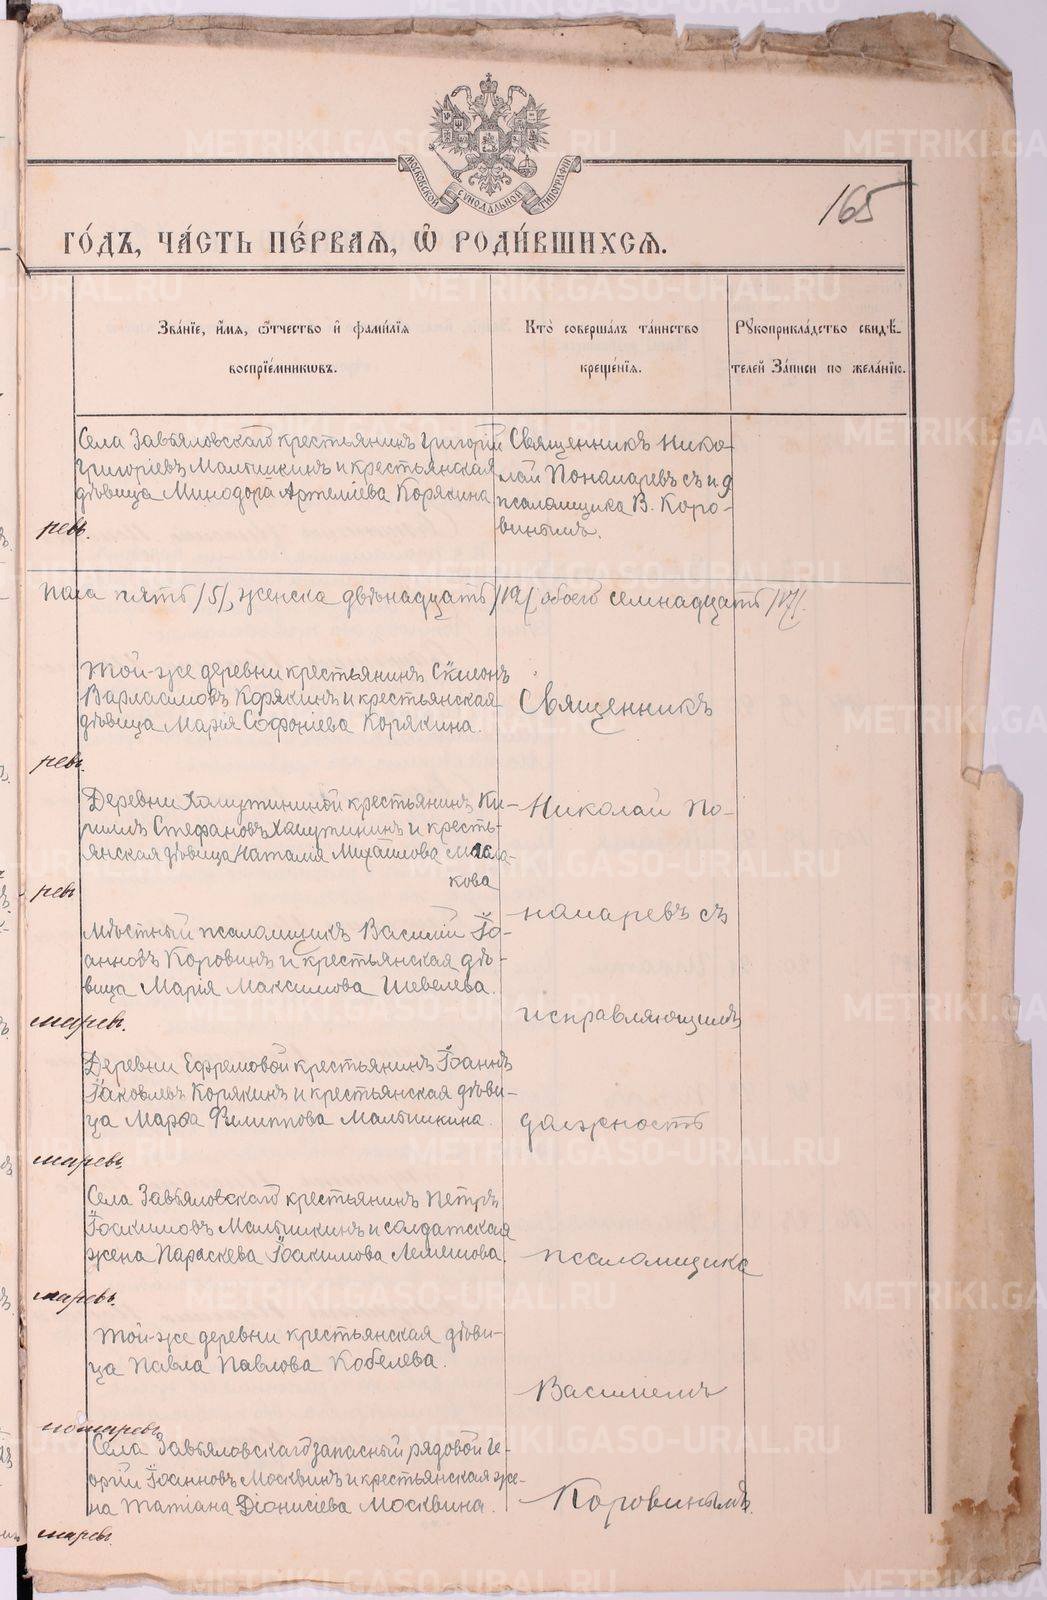 МОСКОВСКОЙ СѴНОДАЛЬНОЙ ТИПОГРАФІИ
165
ГО́ДЪ, ЧА́СТЬ ПЕ́РВАЯ, Ѽ РОДИ́ВШИХСЯ.
Зва́нїе, и҆́мя, ѻ҆́тчество и҆ фами́лїя
воспрїе́мникѡвъ.
Кто̀ соверша́лъ та́инство
креще́нїя.
Рꙋкоприкла́дство свидѣ́-
телей За́писи по жела́нїю.
Села Завьяловскаго крестьянинъ Григорій
Григоріевъ Малышкинъ и крестьянская
дѣвица Минодора Артеміева Корякина
Священникъ Нико-
лай Пономаревъ съ и д
псаломщика В. Коро-
винымъ.
ревъ.
пола пять /5/, женска двѣнадцать /12/ обоего семнадцать /17/.
Той-же деревни крестьянинъ Сѵмеонъ
Варлаамовъ Корякинъ и крестьянская
дѣвица Марія Софоніева Корякина.
Священникъ
ревъ.
Деревни Хамутининой крестьянинъ Ки-
риллъ Стефановъ Хамутининъ и кресть-
янская дѣвица Наталія Михайлова
кова
Николай По-
ревъ
Мѣстный псаломщикъ Василій Іо-
анновъ Коровинъ и крестьянская дѣ-
вица Марія Максимова Шевелева.
номаревъ съ
маревъ.
исправляющимъ
Деревни Ефремовой крестьянинъ Іоаннъ
Іаковлевъ Корякинъ и крестьянская дѣви-
ца Марѳа Филиппова Малышкина.
должность
маревъ
Села Завьяловскаго крестьянинъ Петръ
Іоакимовъ Малышкинъ и солдатская
жена Параскева Іоакимова Лемешова.
псаломщика
маревъ.
Той-же деревни крестьянская дѣви-
ца Павла Павлова Кобелева.
Василіемъ
номаревъ
Села Завьяловскаго запасный рядовой Ге-
оргій Іоанновъ Москвинъ и крестьянская же-
на Татіана Діонисіева Москвина.
Коровинымъ.
маревъ.
METRIKI.GASO-URAL.RU